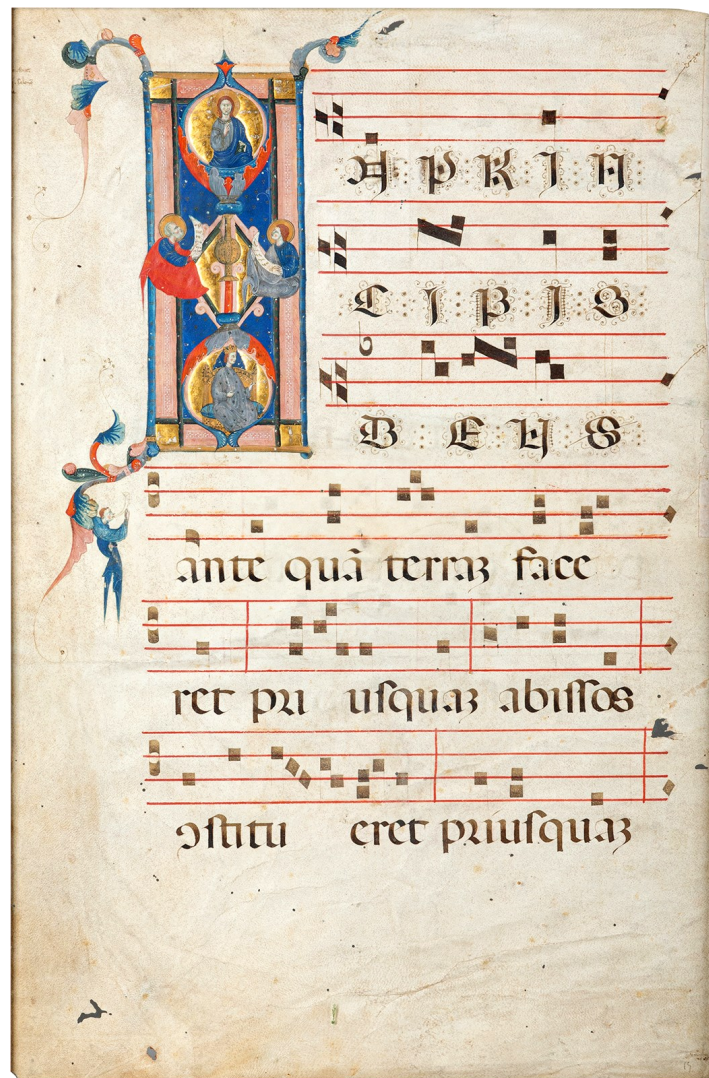 IN PRIN
CIPIO
DEUS
ante quã terraꝫ face
ret pri usquaꝫ abissos
ꝯstitu eret priusquaꝫ